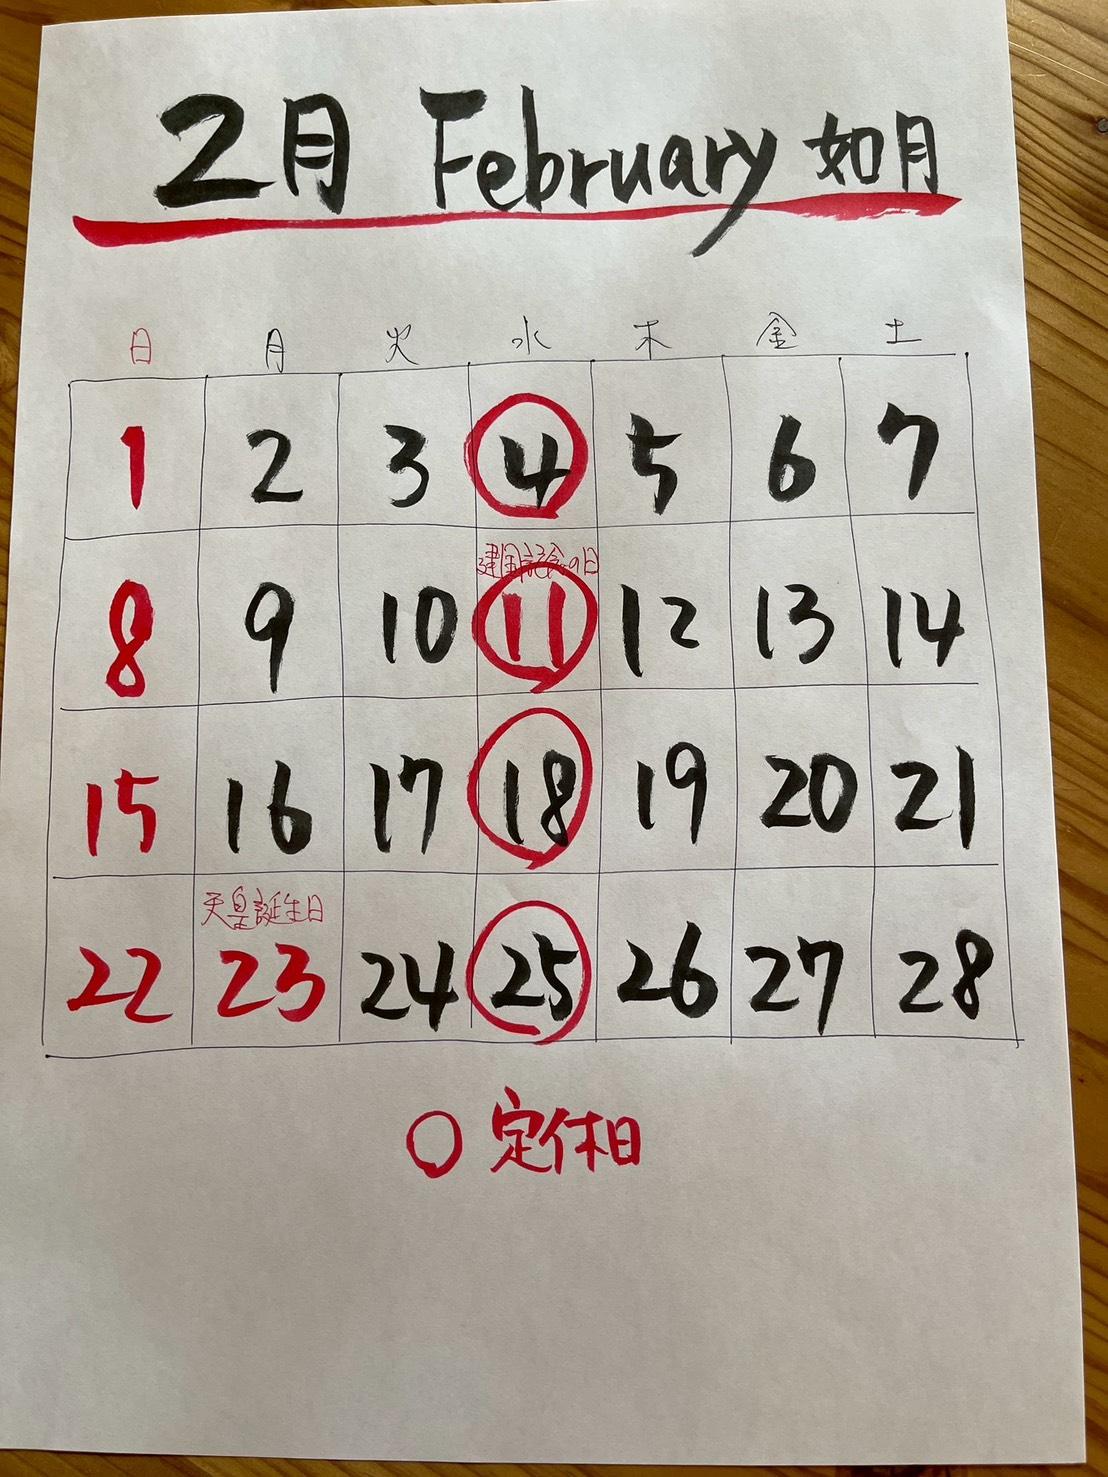 2月 February 如月
日 月 火 水 木 金 土
1 2 3 4 5 6 7
建国記念の日
8 9 10 11 12 13 14
15 16 17 18 19 20 21
天皇誕生日
22 23 24 25 26 27 28
○ 定休日